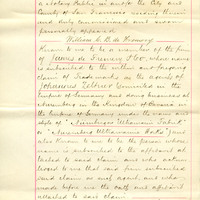 a Notary Public in and for the City and
County of San Francisco
and duly commissioned and sworn
personally appeared
William C. B. de Fremery
Known to me to be a member of the firm
of James de Fremery & Co, who
is subscribed to the within and foregoing
claim of Trademarks as the agents of
Johannes Zeltner domiciled in the
Empire of Germany and doing business at
Nuremberg in the Kingdom of Bavaria in
the Empire of Germany under the name and
style of "Nürnberger Ultramarin Fabrik"
or "Nuremberg Ultramarine Works" and
also known to me to be the person whose
name is subscribed to the affidavit at-
tached to said claim and who acknow-
ledged to me that said firm subscribed
said claim as such agent and who
made before me the oath and affidavit
attached to said claim